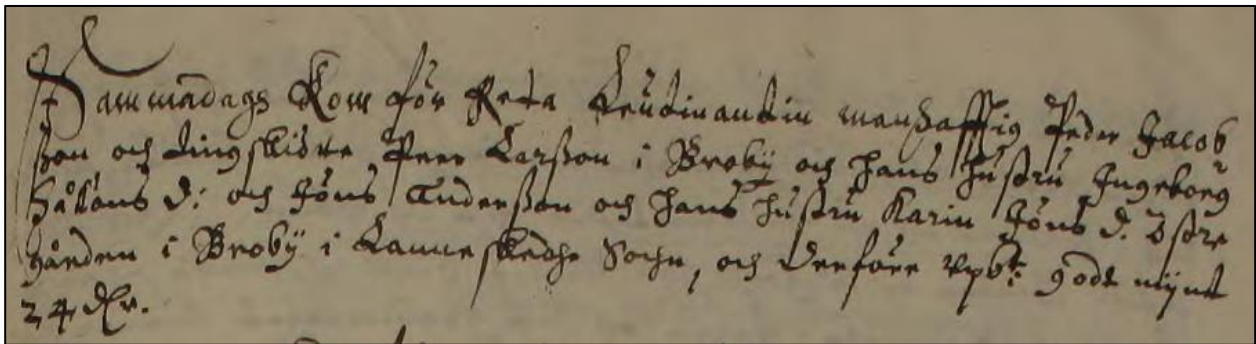 Sammadags Kom för Reta Leutinantin manhafftig Peder Jacob
ßon och tingskifre Peer Larßon i Broby och hans hustru Ingeborg
Håkons d: och Jöns Anderßon och hans hustru Karin Jöns d. Östre
gården i Broby i Lannaskedhe Sochn, och derföre upb: godt mÿnt
24 dlr.